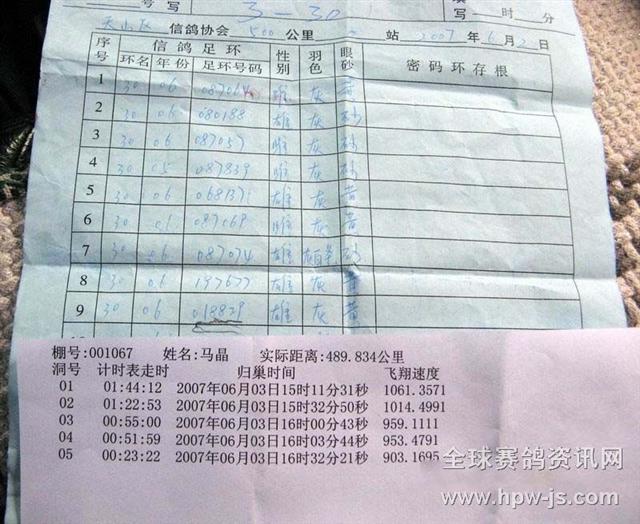 号写 3-30 填写 时 分
天山区 信鸽协会 500 公里 站 2007 年 6 月 2 日
序号 信鸽足环 性别 羽色 眼砂 密码环存根
环名 年份 足环号码
1 30 06 灰 黄
2 30 06 080188 雄 灰 砂
3 30 06 087057 雌 灰 砂
4 30 05 087839 雌 灰 砂
5 30 06 068371 雄 灰 黄
6 30 06 087069 雌 灰 黄
7 30 06 087074 雄 砂
8 30 06 197677 雄 灰 黄
9 30 06 018829 雄 灰 黄
棚号:001067 姓名:马晶 实际距离:489.834公里
洞号 计时表走时 归巢时间 飞翔速度
01 01:44:12 2007年06月03日15时11分31秒 1061.3571
02 01:22:53 2007年06月03日15时32分50秒 1014.4991
03 00:55:00 2007年06月03日16时00分43秒 959.1111
04 00:51:59 2007年06月03日16时03分44秒 953.4791
05 00:23:22 2007年06月03日16时32分21秒 903.1695
全球赛鸽资讯网
www.hpw-js.com